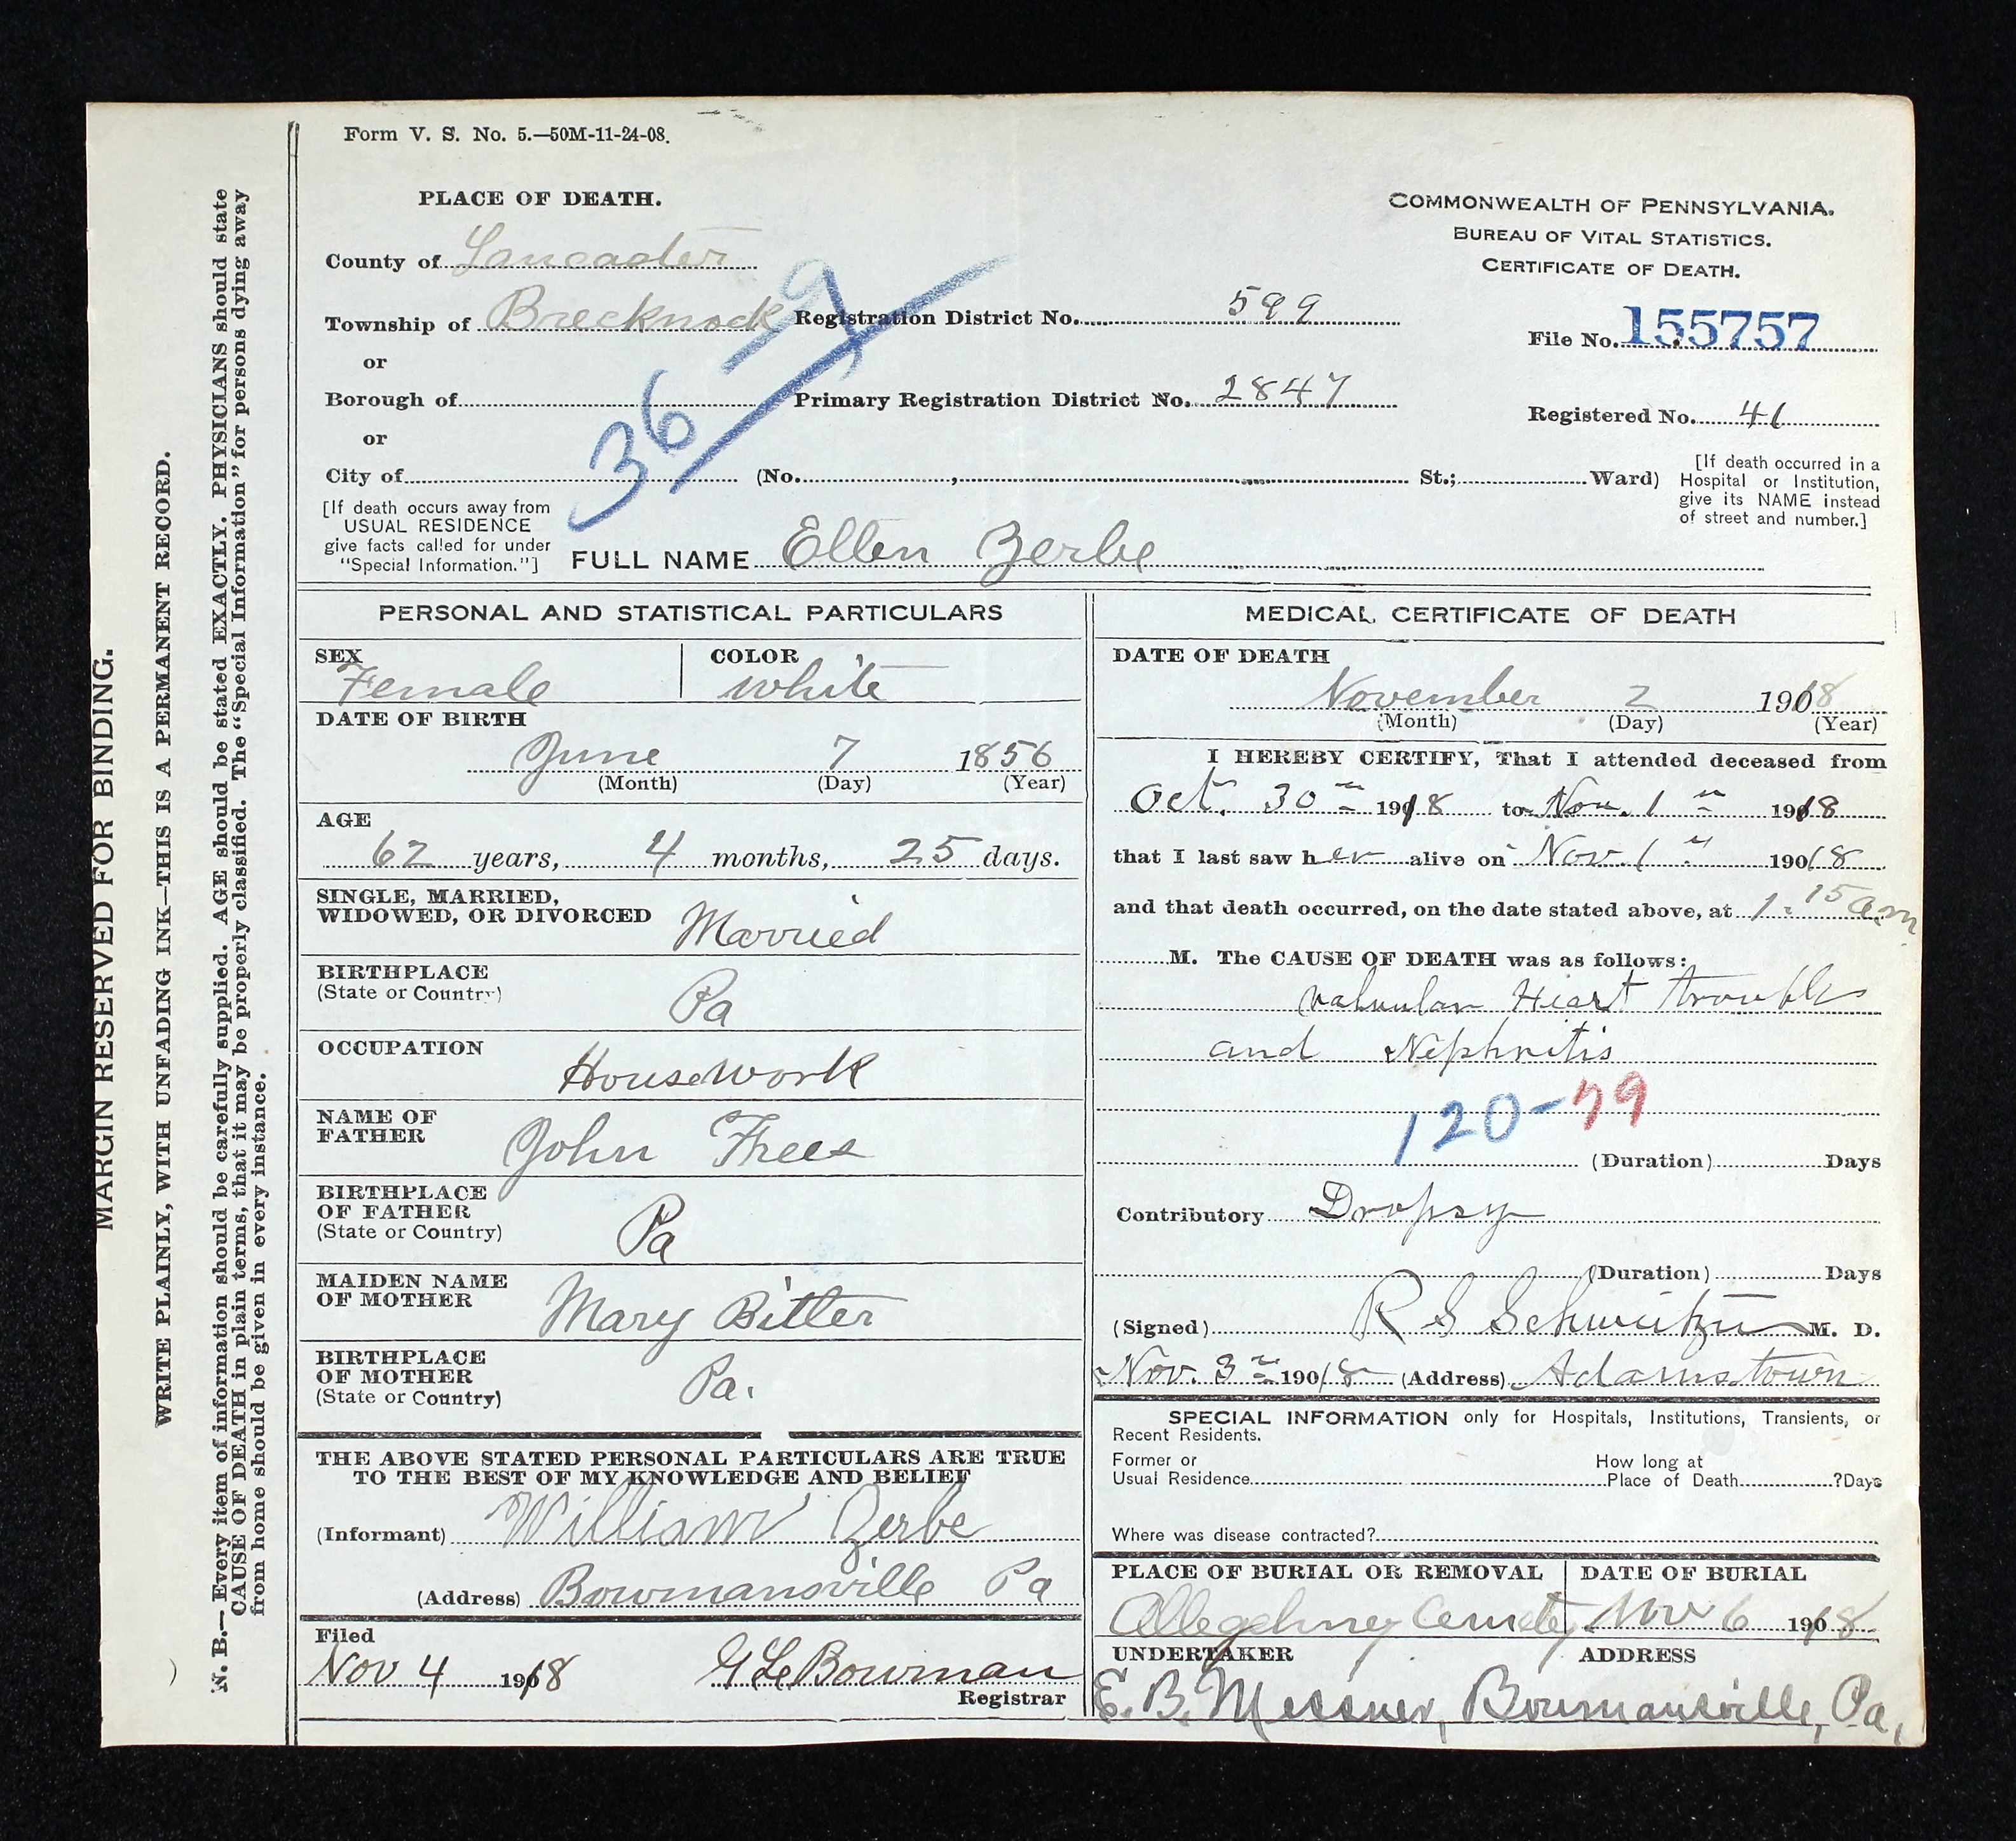 Form V. S. No. 5.—50M-11-24-08.
PLACE OF DEATH.
County of Lancaster
Township of Brecknock
or
Borough of
or
City of
(No. , St.; Ward)
Registration District No. 599
Primary Registration District No. 2847
COMMONWEALTH OF PENNSYLVANIA.
BUREAU OF VITAL STATISTICS.
CERTIFICATE OF DEATH.
File No. 155757
Registered No. 41
36
9
[If death occurs away from
USUAL RESIDENCE
give facts called for under
"Special Information."]
[If death occurred in a
Hospital or Institution,
give its NAME instead
of street and number.]
FULL NAME Ellen Zerbe
PERSONAL AND STATISTICAL PARTICULARS
SEX Female
COLOR white
DATE OF BIRTH
June 7 1856
(Month) (Day) (Year)
AGE
62 years, 4 months, 25 days.
SINGLE, MARRIED,
WIDOWED, OR DIVORCED Married
BIRTHPLACE
(State or Country) Pa
OCCUPATION
Housework
NAME OF
FATHER John Frees
BIRTHPLACE
OF FATHER
(State or Country) Pa
MAIDEN NAME
OF MOTHER Mary Bitler
BIRTHPLACE
OF MOTHER
(State or Country) Pa.
THE ABOVE STATED PERSONAL PARTICULARS ARE TRUE
TO THE BEST OF MY KNOWLEDGE AND BELIEF
(Informant) William Zerbe
(Address) Bowmansville Pa
Filed
Nov 4 1918 G Le Bowman
Registrar
MEDICAL CERTIFICATE OF DEATH
DATE OF DEATH
November 2 1918
(Month) (Day) (Year)
I HEREBY CERTIFY, That I attended deceased from
Oct. 30 1918 to Nov. 1 1918
that I last saw her alive on Nov. 1 1918
and that death occurred, on the date stated above, at 1.15 am
M. The CAUSE OF DEATH was as follows:
valvular Heart trouble
and Nephritis
120-79
(Duration) Days
Contributory Dropsy
(Duration) Days
(Signed) R S Schweitzer M. D.
Nov. 3 1918 (Address) Adamstown
SPECIAL INFORMATION only for Hospitals, Institutions, Transients, or
Recent Residents.
Former or
Usual Residence
How long at
Place of Death ?Days
Where was disease contracted?
PLACE OF BURIAL OR REMOVAL
Allegehney Cemetey
DATE OF BURIAL
Nov 6 1918
UNDERTAKER
ADDRESS
E. B. Messner, Bowmansville, Pa,
MARGIN RESERVED FOR BINDING.
WRITE PLAINLY, WITH UNFADING INK—THIS IS A PERMANENT RECORD.
N. B.—Every item of information should be carefully supplied. AGE should be stated EXACTLY. PHYSICIANS should state
CAUSE OF DEATH in plain terms, that it may be properly classified. The "Special Information" for persons dying away
from home should be given in every instance.